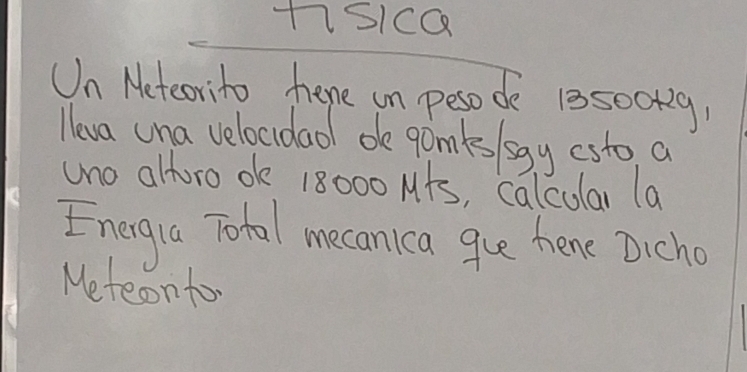 FISICA
Un Meteorito tiene un peso de 13500Kg,
lleva una velocidad de 90mts/sg y esto a
una altura de 18000 Mts, Calcular la
Energia Total mecanica que tiene Dicho
Meteorito.